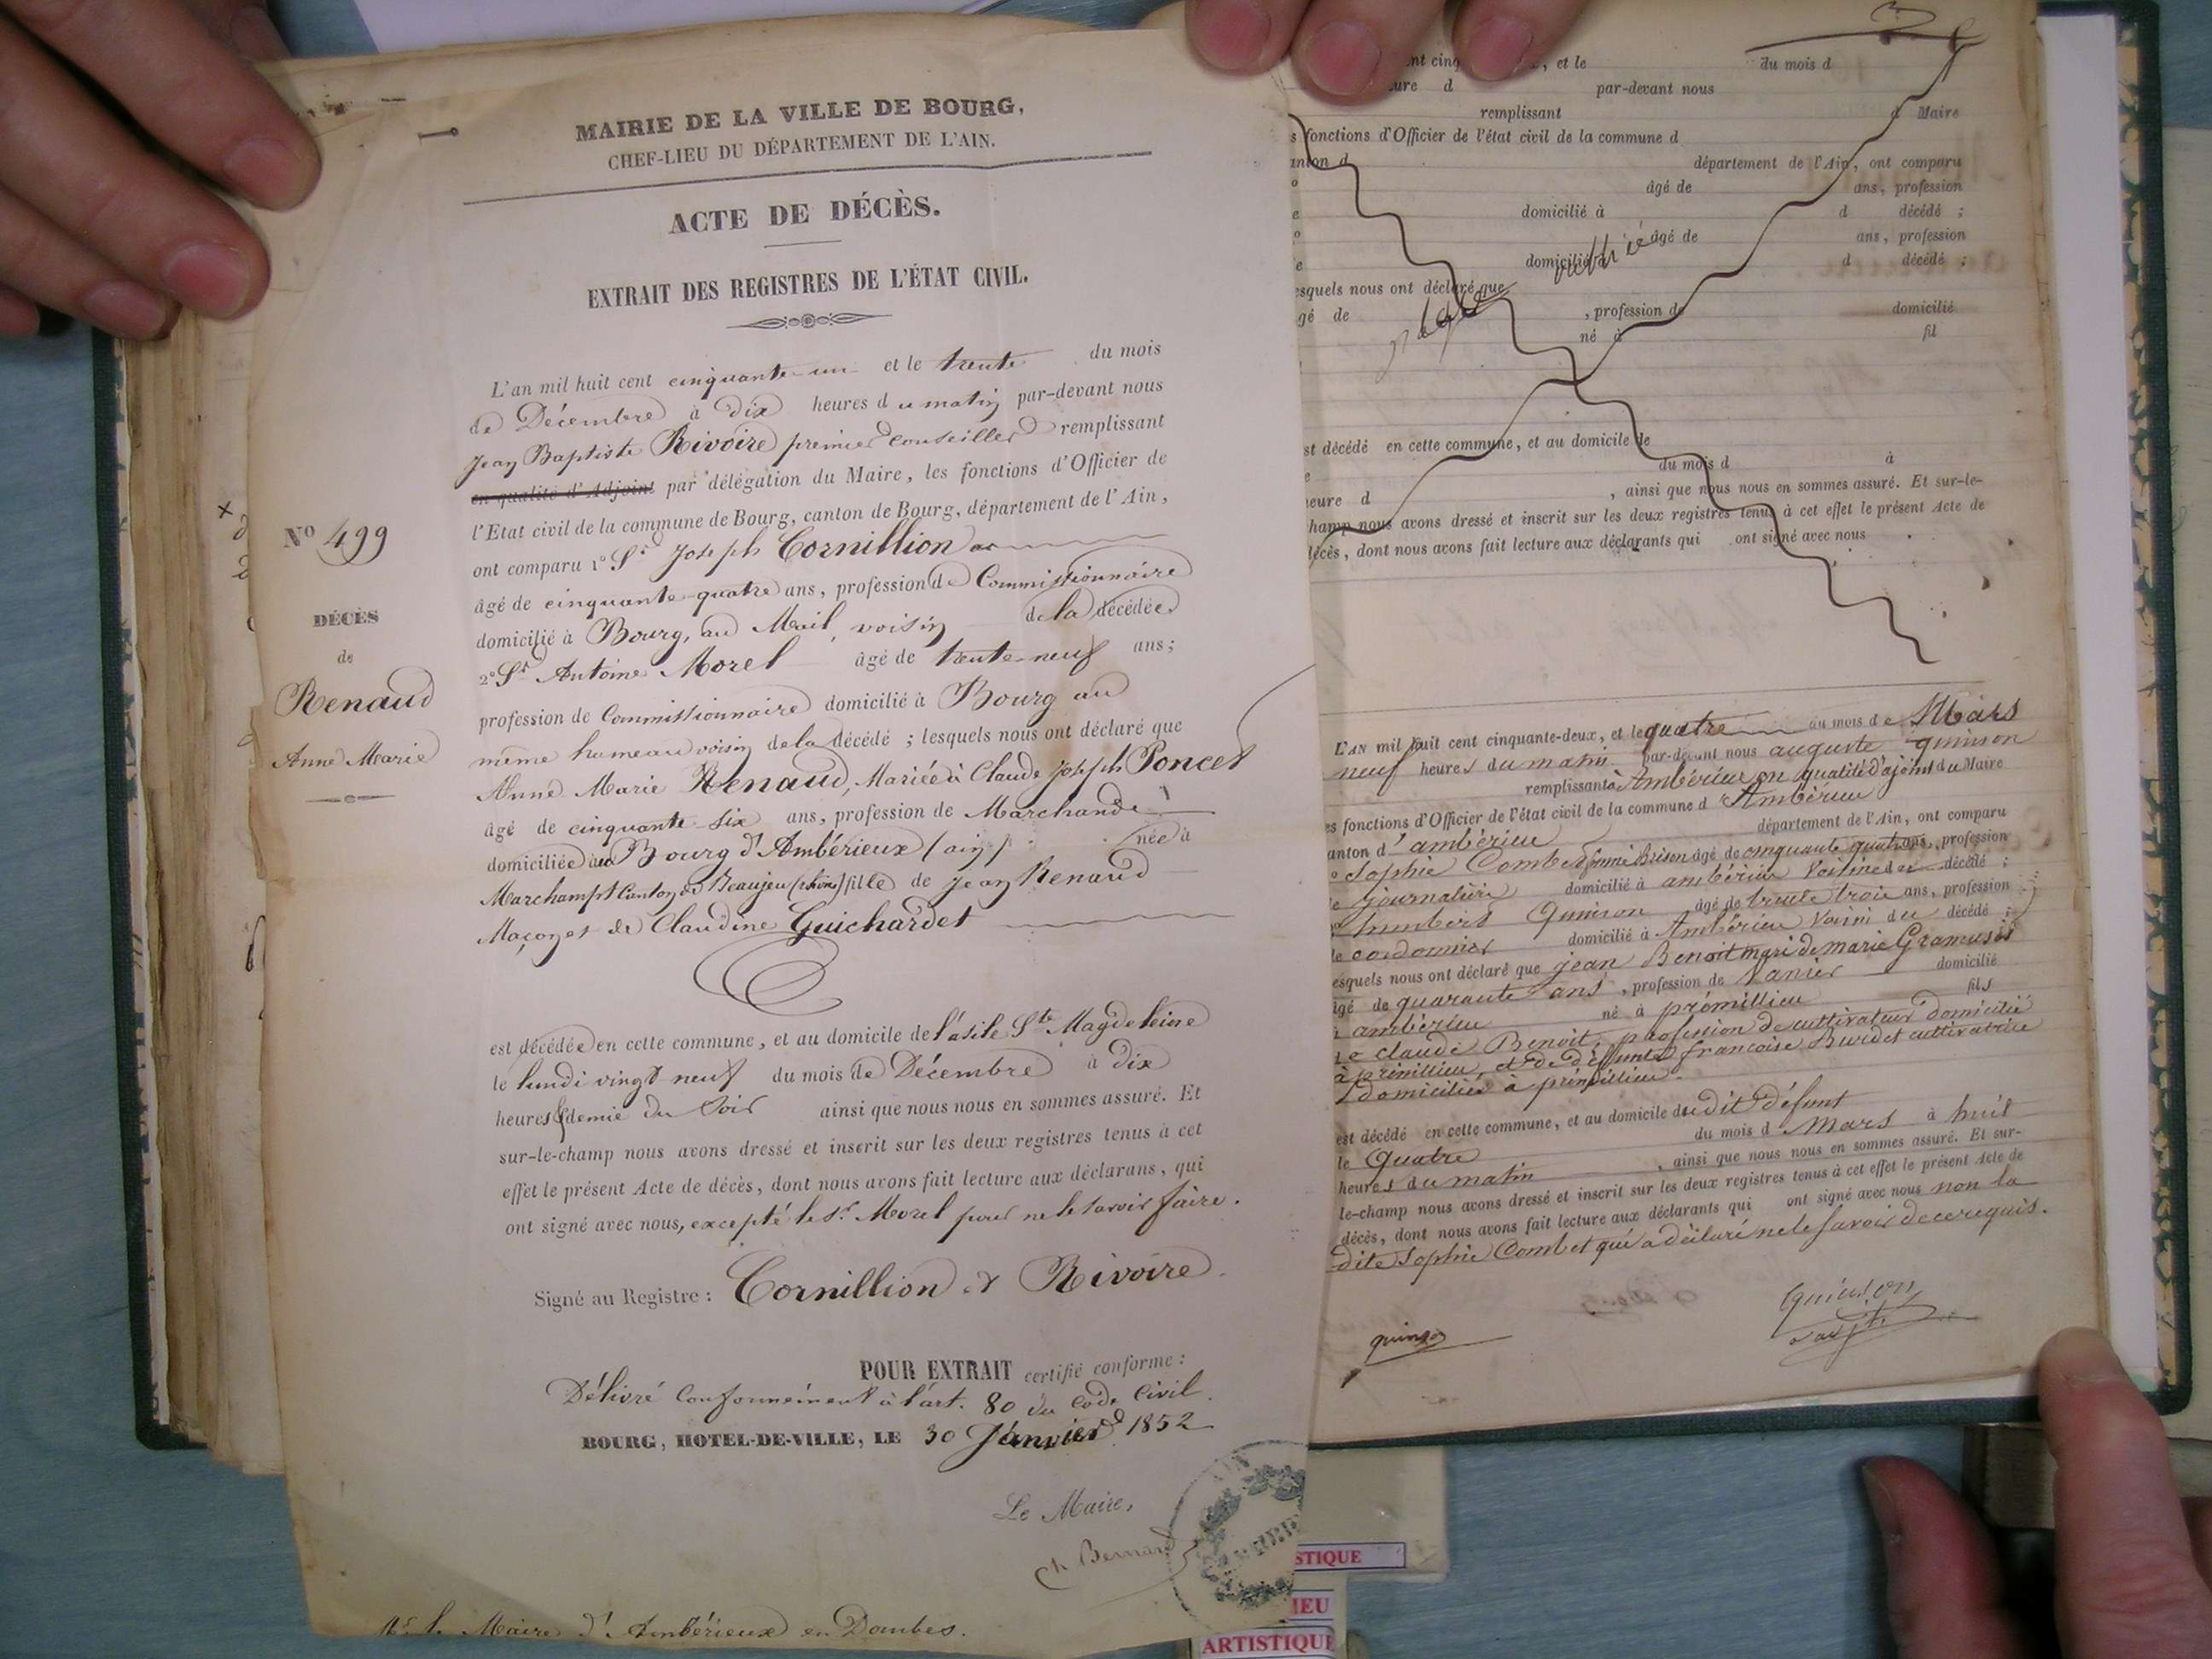 MAIRIE DE LA VILLE DE BOURG,
CHEF-LIEU DU DÉPARTEMENT DE L'AIN.
ACTE DE DÉCÈS.
EXTRAIT DES REGISTRES DE L'ÉTAT CIVIL.
No 499
DÉCÈS
de
Renaud
Anne Marie
L'an mil huit cent cinquante-un et le trente du mois
de Décembre à Dix heures du matin par-devant nous
Jean Baptiste Rivoire premier Conseiller remplissant
en qualité d'Adjoint par délégation du Maire, les fonctions d'Officier de
l'Etat civil de la commune de Bourg, canton de Bourg, département de l'Ain,
ont comparu 1° Sr Joseph Cornillion
âgé de cinquante-quatre ans, profession de Commissionnaire
domicilié à Bourg, au Mail, voisin de la décédée
2° Sr Antoine Morel âgé de trente-neuf ans;
profession de Commissionnaire domicilié à Bourg au
même hameau voisin de la décédé ; lesquels nous ont déclaré que
Anne Marie Renaud, Mariée à Claude Joseph Poncet
âgé de cinquante six ans, profession de Marchande
domiciliée au Bourg d'Ambérieux (ain) née à
Marchampt Canton de Beaujeu (rhône) fille de Jean Renaud
Maçon et de Claudine Guichardet
est décédée en cette commune, et au domicile de l'asile Ste Magdeleine
le lundi vingt neuf du mois de Décembre à Dix
heures & demie du Soir ainsi que nous nous en sommes assuré. Et
sur-le-champ nous avons dressé et inscrit sur les deux registres tenus à cet
effet le présent Acte de décès, dont nous avons fait lecture aux déclarans, qui
ont signé avec nous, excepté le Sr. Morel pour ne le savoir faire.
Signé au Registre : Cornillion et Rivoire
POUR EXTRAIT certifié conforme :
Délivré Conformément à l'art. 80 du Code Civil.
BOURG, HOTEL-DE-VILLE, LE 30 Janvier 1852
Le Maire,
Ch Bernard
Mr le Maire d'Ambérieux en Dombes.
AIN
nt cinq , et le du mois d
ure d par-devant nous
remplissant d Maire
s fonctions d'Officier de l'état civil de la commune d
anton d département de l'Ain, ont comparu
° âgé de ans, profession
e domicilié à d décédé ;
° âgé de ans, profession
e domicilié à d décédé ;
esquels nous ont déclaré que
gé de , profession de domicilié
né à fil
st décédé en cette commune, et au domicile de
e du mois d à
eure d , ainsi que nous nous en sommes assuré. Et sur-le-
hamp nous avons dressé et inscrit sur les deux registres tenus à cet effet le présent Acte de
décès, dont nous avons fait lecture aux déclarants qui ont signé avec nous
L'AN mil huit cent cinquante-deux, et le quatre du mois de Mars
neuf heures du matin par-devant nous auguste quinson
remplissant à Ambérieu en qualité d'ajoint du Maire
es fonctions d'Officier de l'état civil de la commune d'Ambérieu
anton d'ambérieu département de l'Ain, ont comparu
° Sophie Combet âgé de cinquante quatre ans, profession
e journalière domicilié à ambérieu Voisine du décédé ;
humbert Quinson âgé de trente trois ans, profession
de cordonnier domicilié à Ambérieu Voisin du décédé ;
esquels nous ont déclaré que jean Benoit mari de marie
âgé de quarante ans , profession de Vanier domicilié
à ambérieu né à prémillieu fils
de claude Benoit, profession de cultivateur domicilié
à prémillieu, et de défunte francoise Burdet cultivatrice
domiciliée à prémillieu.
est décédé en cette commune, et au domicile du dit défunt
le Quatre du mois d Mars à huit
heures du matin , ainsi que nous nous en sommes assuré. Et sur-
le-champ nous avons dressé et inscrit sur les deux registres tenus à cet effet le présent Acte de
décès, dont nous avons fait lecture aux déclarants qui ont signé avec nous non la
dite Sophie Combet qui a déclaré ne le savoir de ce requis.
quinson
Quinson
adjt
STIQUE
IEU
ARTISTIQUE